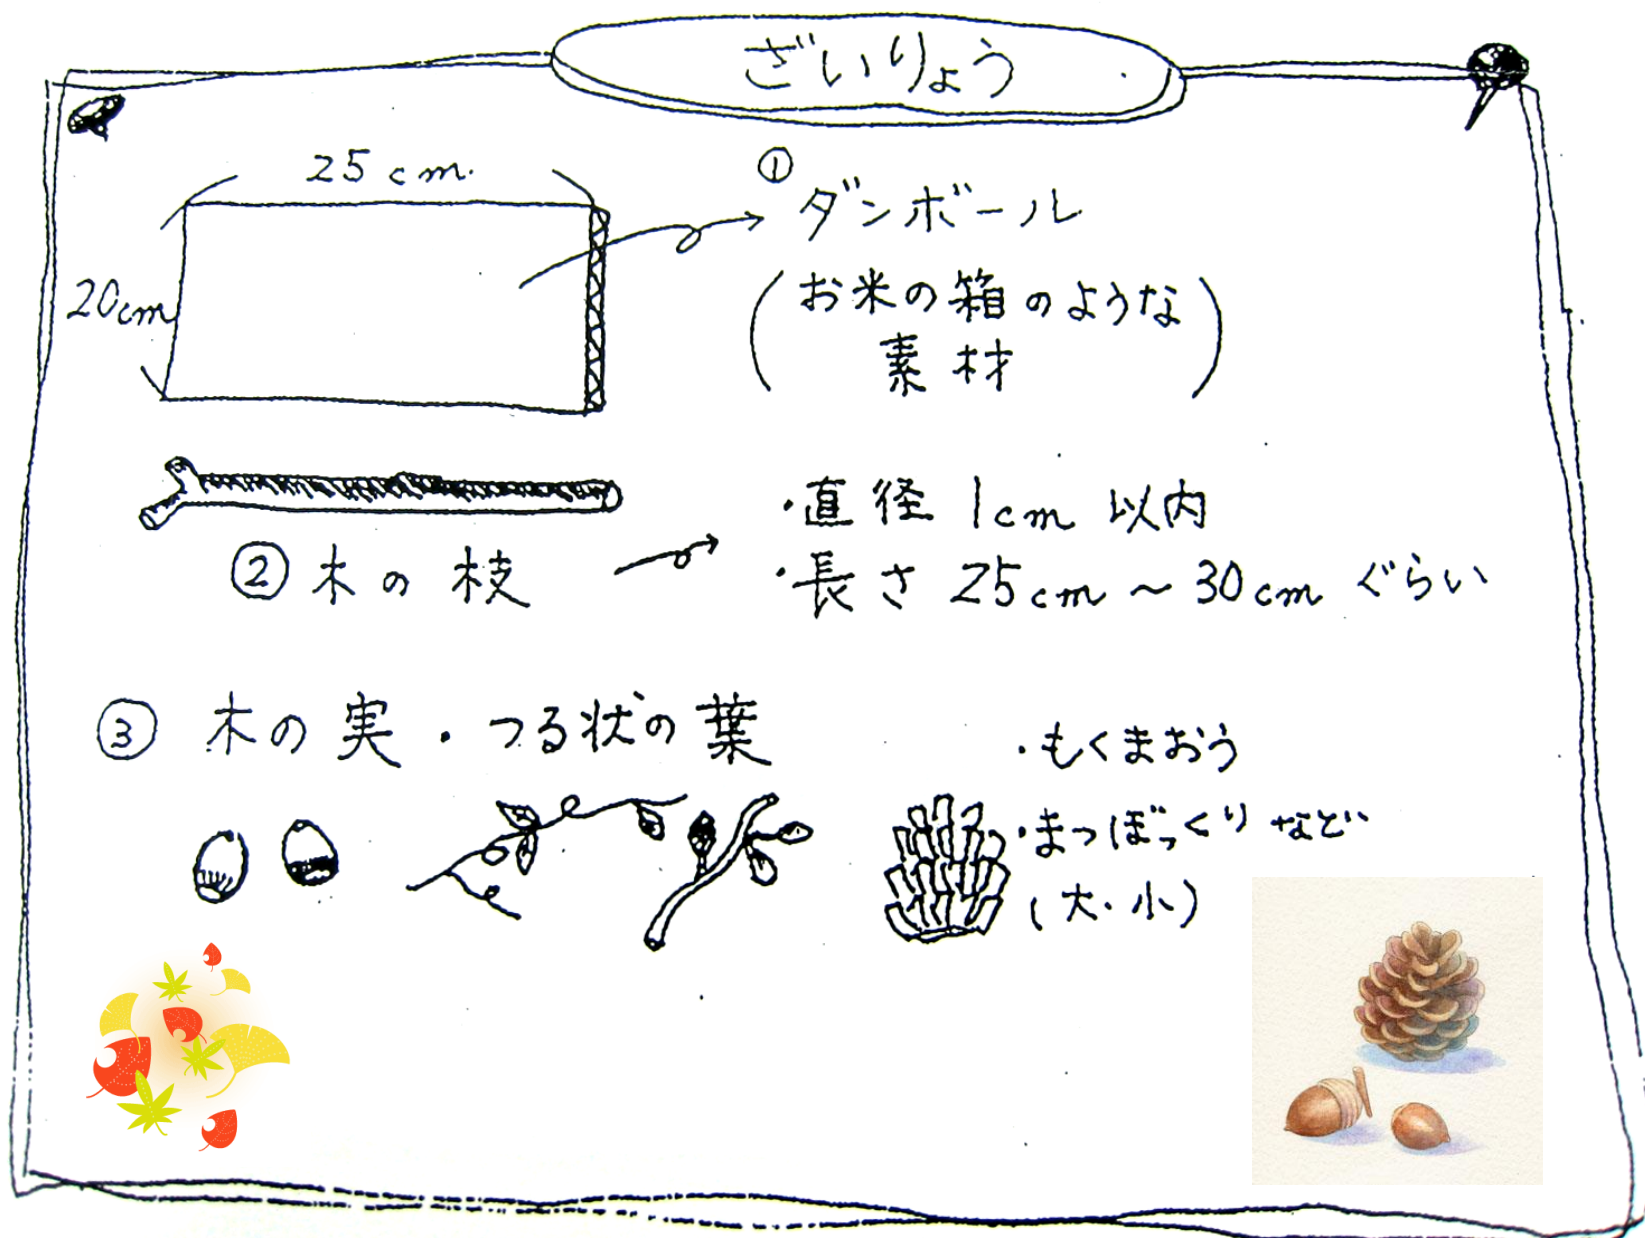 ざいりょう
25cm.
20cm
①
ダンボール
(お米の箱のような
素材)
②木の枝
・直径 1cm 以内
・長さ 25cm〜30cm ぐらい
③ 木の実・つる状の葉
・もくまおう
・まつぼっくり など
(大・小)